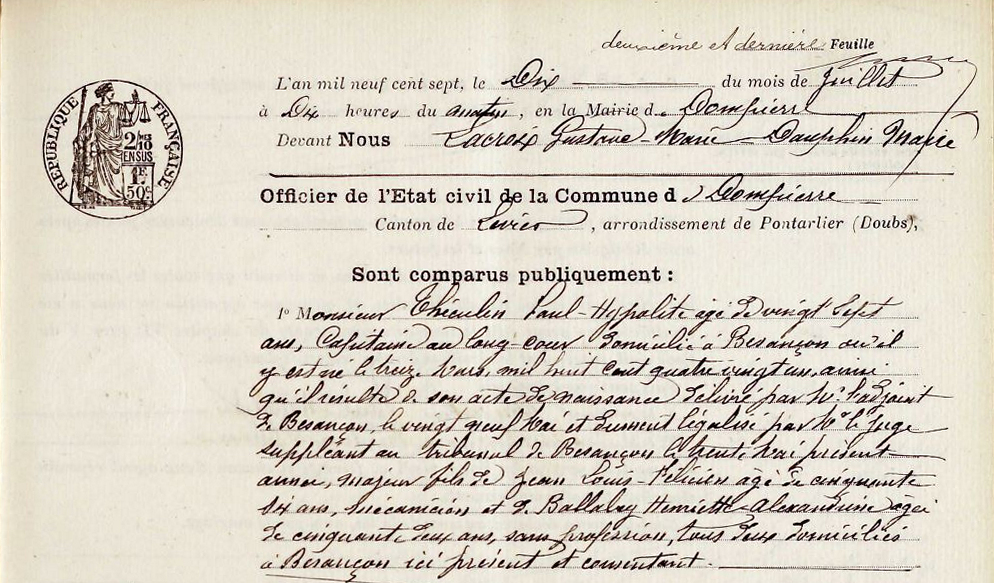 deuxième et dernière Feuille
L'an mil neuf cent sept, le Dix du mois de Juillet
à Dix heures du matin, en la Mairie d. Dompierre
Devant Nous Lacroix Gustave-Marie-Dauphin Maire
RÉPUBLIQUE FRANÇAISE
2/10
EN SUS
1F
50c
Officier de l'Etat civil de la Commune d Dompierre
Canton de Levier, arrondissement de Pontarlier (Doubs),
Sont comparus publiquement :
1º Monsieur Paul-Hypolite âgé de vingt sept
ans, Capitaine au long-cour domicilié à Besançon où il
y est né le treize Mars, mil huit cent quatre vingt un, ainsi
qu'il résulte de son acte de naissance délivré par Mr l'adjoint
de Besançon, le vingt neuf Mai et dument légalisé par Mr le Juge
suppléant au tribunal de Besançon le trente Mai présent
année, majeur fils de Jean Louis-Félicien âgé de cinquante
six ans, mécanicien et de Henriette-Alexandrine âgée
de cinquante deux ans, sans profession, tous deux domiciliés
à Besançon ici présent et consentant.